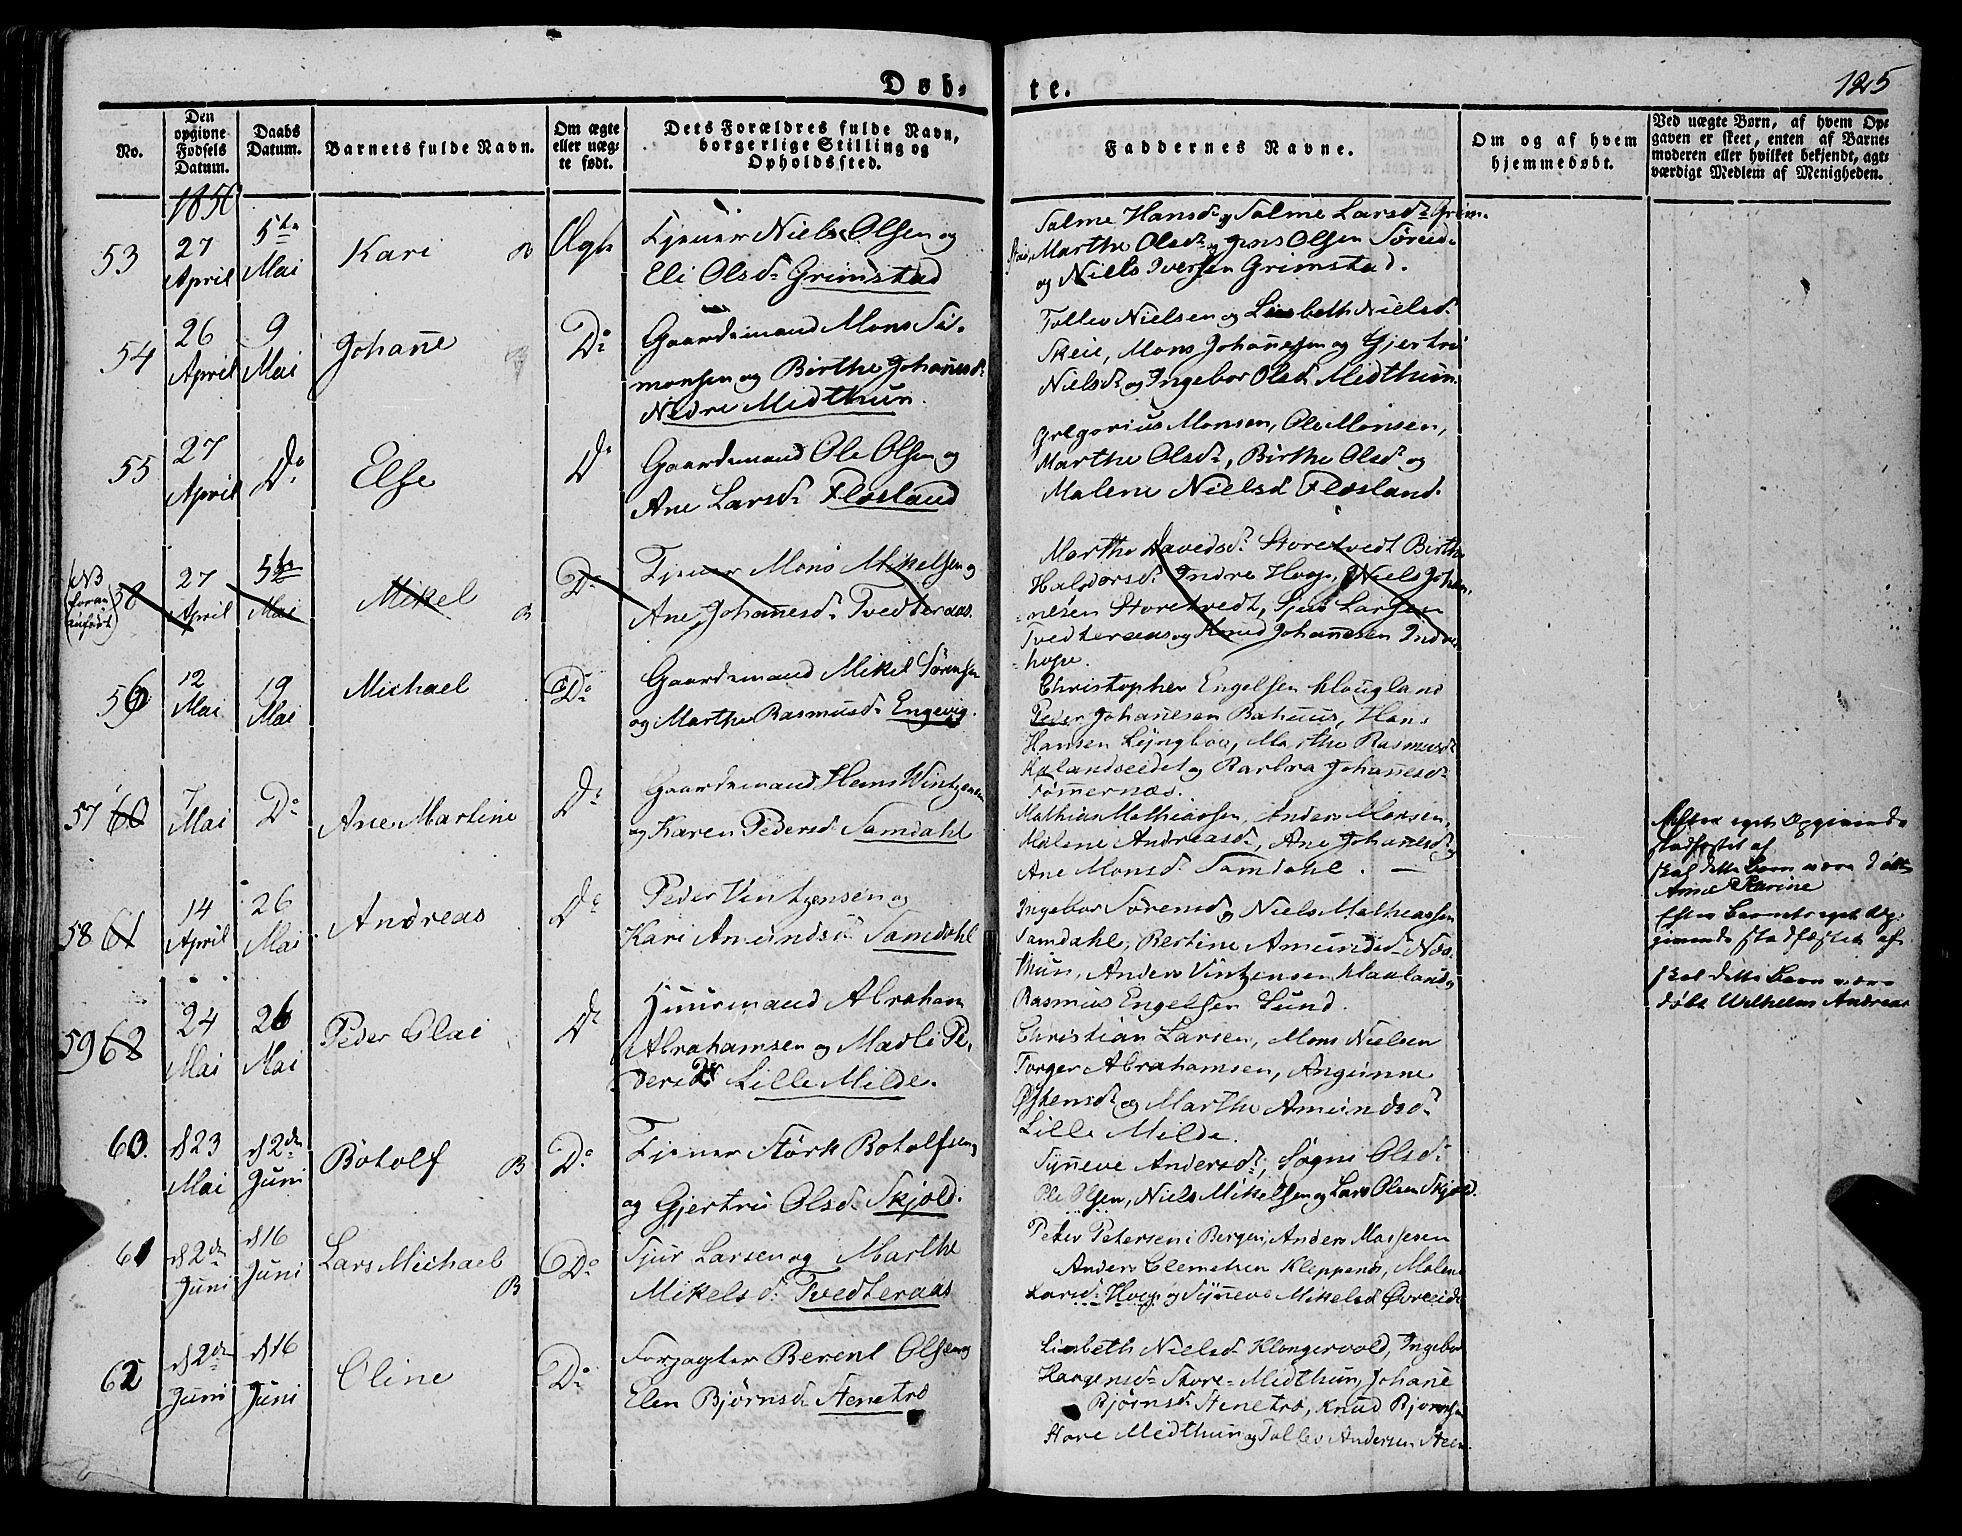 Døb-
te.
125
No.
Den opgivne Fødsels Datum.
Daabs Datum.
Barnets fulde Navn.
Om ægte eller uægte født.
Dets Forældres fulde Navn, borgerlige Stilling og Opholdssted.
Faddernes Navne.
Om og af hvem hjemmedøbt.
Ved uægte Børn, af hvem Opgaven er skeet, enten af Barnemoderen eller hvilket bekjendt, agtværdigt Medlem af Menigheden.
1850
53
27 April
5te Mai
Kari
B
Ægte
Tjener Niels Olsen og
Eli Olsd. Grimstad
Salme Hansd. og Salme Larsd. Grim-
stad, Marthe Olsd. og Jens Olsen Søreid
og Niels Iversen Grimstad.
54
26 April
9 Mai
Johane
Do
Gaardmand Mons Si-
monsen og Birthe Johanesd.
Nedre Midthun.
Tollev Nielsen og Lisbeth Nielsd.
Skeie, Mons Johanesen og Gjertru
Nielsd. og Ingebor Olsd. Midthun.
55
27 April
Do
Else
Do
Gaardmand Ole Olsen og
Ane Larsd. Flæsland
Gregorius Monsen, Ole Monsen,
Marthe Olsd., Birthe Olsd. og
Malene Nielsd. Flæsland.
(NB foran anført)
58
27 April
5te Mai
Mikel
B
Do
Tjener Mons Mikelsen og
Ane Johanesd. Tvedteraas.
Marthe Davedsd. Storetvedt Birthe
Haldorsd. Indre Hope, Niels Johan-
nesen Storetvedt, Sjur Larsen
Tvedteraas og Knud Johanesen Indre
hope.
56
12 Mai
19 Mai
Michael
Do
Gaardmand Mikel Sørensen
og Marthe Rasmusd. Engevig.
Christopher Engelsen Hougland
Peder Johanesen Bahuus, Hans
Hansen Lyngboe, Marthe Rasmusd.
Kalandseidet og Barbra Johanesd.
Tømmernæs.
57 60
7 Mai
Do
Ane Martine
Do
Gaardmand Hans Wintzensen
og Karen Pedersd. Samdahl
Mathias Mathiassen, Anders Monsen,
Malene Andreasd., Ane Johanesd. og
Ane Monsd. Samdahl.
Efter eget Opgivende
stadfæstet af
skal dette Barn være døbt
Anne Karine
58 61
14 April
26 Mai
Andreas
Do
Peder Vintzensen og
Kari Amundsd. Samdahl
Ingebor Sørensd. og Niels Mathiassen
Samdahl, Bertine Amundsd. Nes-
thun, Anders Vintzensen Haaland og
Rasmus Engelsen Lund.
Efter Barnets eget Op-
givende stadfæstet af
skal dette Barn være
døbt Wilhelm Andreas
59 62
24 Mai
26 Mai
Peder Olai
Do
Huusmand Abraham
Abrahamsen og Madli Pe-
dersd. Lille Milde.
Christian Larsen, Mons Nielsen
Torger Abrahamsen, Angunne
Østensd. og Marthe Amundsd.
Lille Milde.
60.
d 23 Mai
d 2den Juni
Botolf
B
Do
Tjener Størk Botolfsen
og Gjertru Olsd. Skjold.
Synneve Andersd., Søgni Olsd.
Ole Olsen, Niels Mikelsen og Lars Olsen Skjold.
61
d 2den Juni
d 16 Juni
Lars Michael
B
Do
Sjur Larsen og Marthe
Mikelsd. Tvedteraas
Peter Petersen i Bergen, Anders Monsen
Anders Clemetsen Kleppenes, Malene
Larsd. Hope og Synneve Mikelsd. Øvreeide
62
d 2den Juni
d 16 Juni
Oline
Do
Forpagter Berent Olsen og
Elen Bjørnsd. Stenetræ
Lisbeth Nielsd. Klongervold, Ingebor
Haagensd. Store-Midthun, Johane
Bjørnsd. Stenetræ, Knud Bjørnsen
Store Midthun og Tollev Andersen Steen.